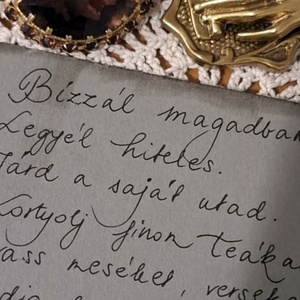 Bízzál magadban
Legyél hiteles.
Járd a saját utad.
Kortyolj finom teáka
vass meséket, verseke